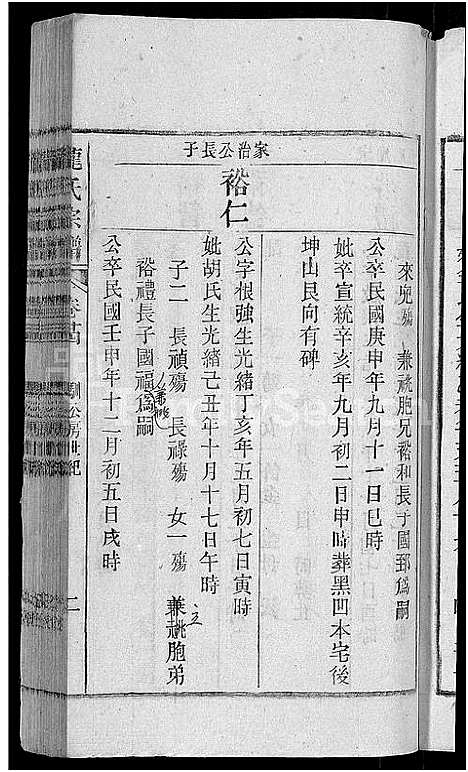 來兜殤 兼祧胞兄裕和長子國郅爲嗣
公卒民國庚申年九月十一日巳時
妣卒宣統辛亥年九月初二日申時葬黑凹本宅後
坤山艮向有碑
家治公長子
裕仁
公字根強生光緒丁亥年五月初七日寅時
妣胡氏生光緒己丑年十月十七日午時
子二 長禎殤 長祿殤 女一殤 立兼祧胞弟
裕禮長子國福爲嗣
兼祧
公卒民國壬申年十二月初五日戌時
龍氏宗譜
卷
公房世紀
二